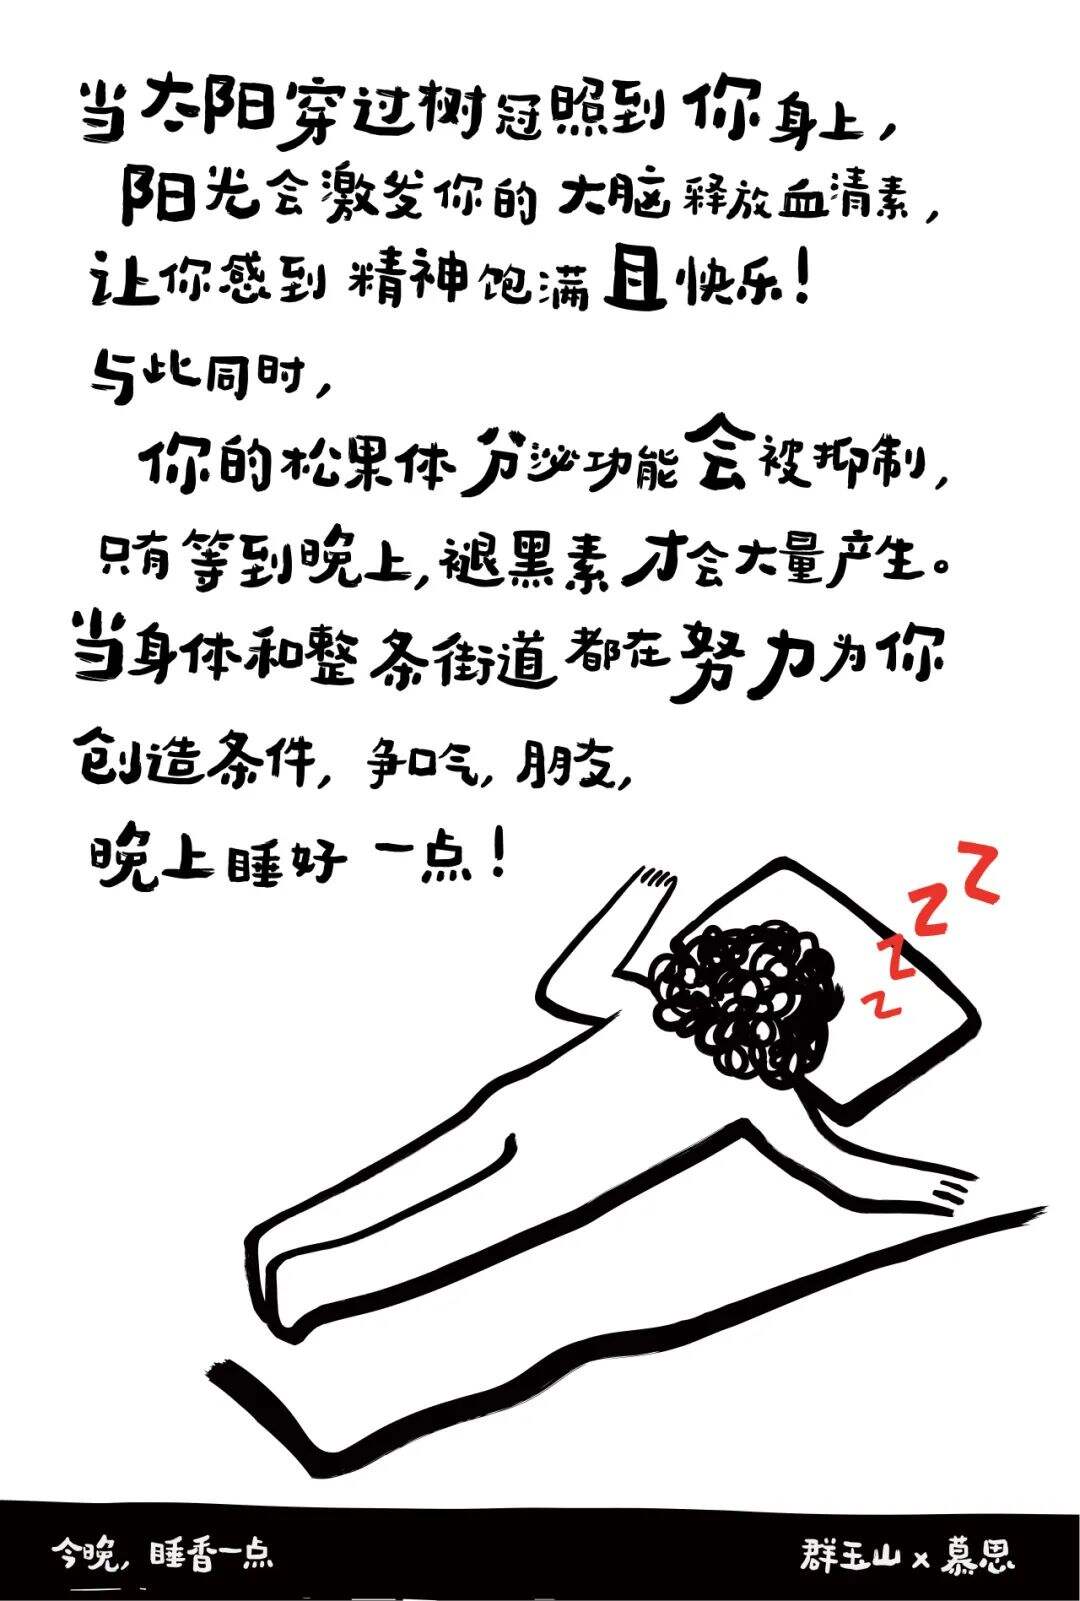 当太阳穿过树冠照到你身上，
阳光会激发你的大脑释放血清素，
让你感到精神饱满且快乐！
与此同时，
你的松果体分泌功能会被抑制，
只有等到晚上，褪黑素才会大量产生。
当身体和整条街道都在努力为你
创造条件，争口气，朋友，
晚上睡好一点！
z z z z
今晚，睡香一点
群玉山 x 慕思